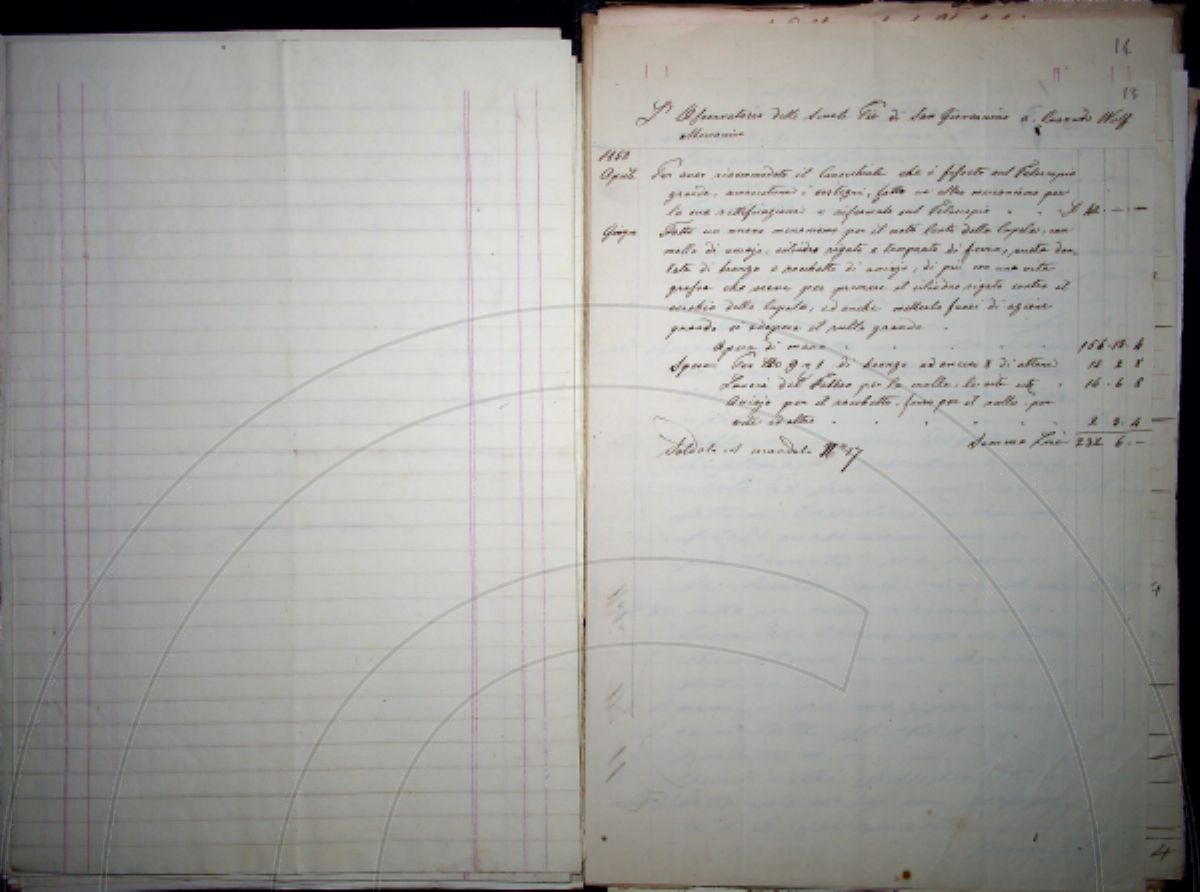 14
13
L'Osservatorio delle Scuole Pie di San Giovannino a Corrado Wolf
Meccanico
1850
Aprile Per aver riaccomodato il Cannochiale che è fissato sul Telescopio
grande, i sostegni, fatto un altro meccanismo per
la sua rettificazione e rifermato sul Telescopio £ 42 . — —
Giugno Fatto un nuovo meccanismo per il moto lento della Cupola, con
molle di acciajo, cilindro rigato e temprato di ferro, ruota den=
tata di bronzo e rocchetto di acciajo, di più con una vite
grossa che serve per premere il cilindro rigato contro il
cerchio della Cupola, ed anche metterlo fuori di azione
quando si adopera il rullo grande
Opera di mano 156 . 13 . 4
Spese: Per di bronzo ed oncie 8 di ottone 14 2 8
Lavori del Fabbro per la molla, le viti 16 . 6 8
Acciajo per il rocchetto, ferro per il rullo, per
viti ed altro 2 . 3 . 4
Saldato col mandato N° 17 Somma Lire 232 6 . —
4